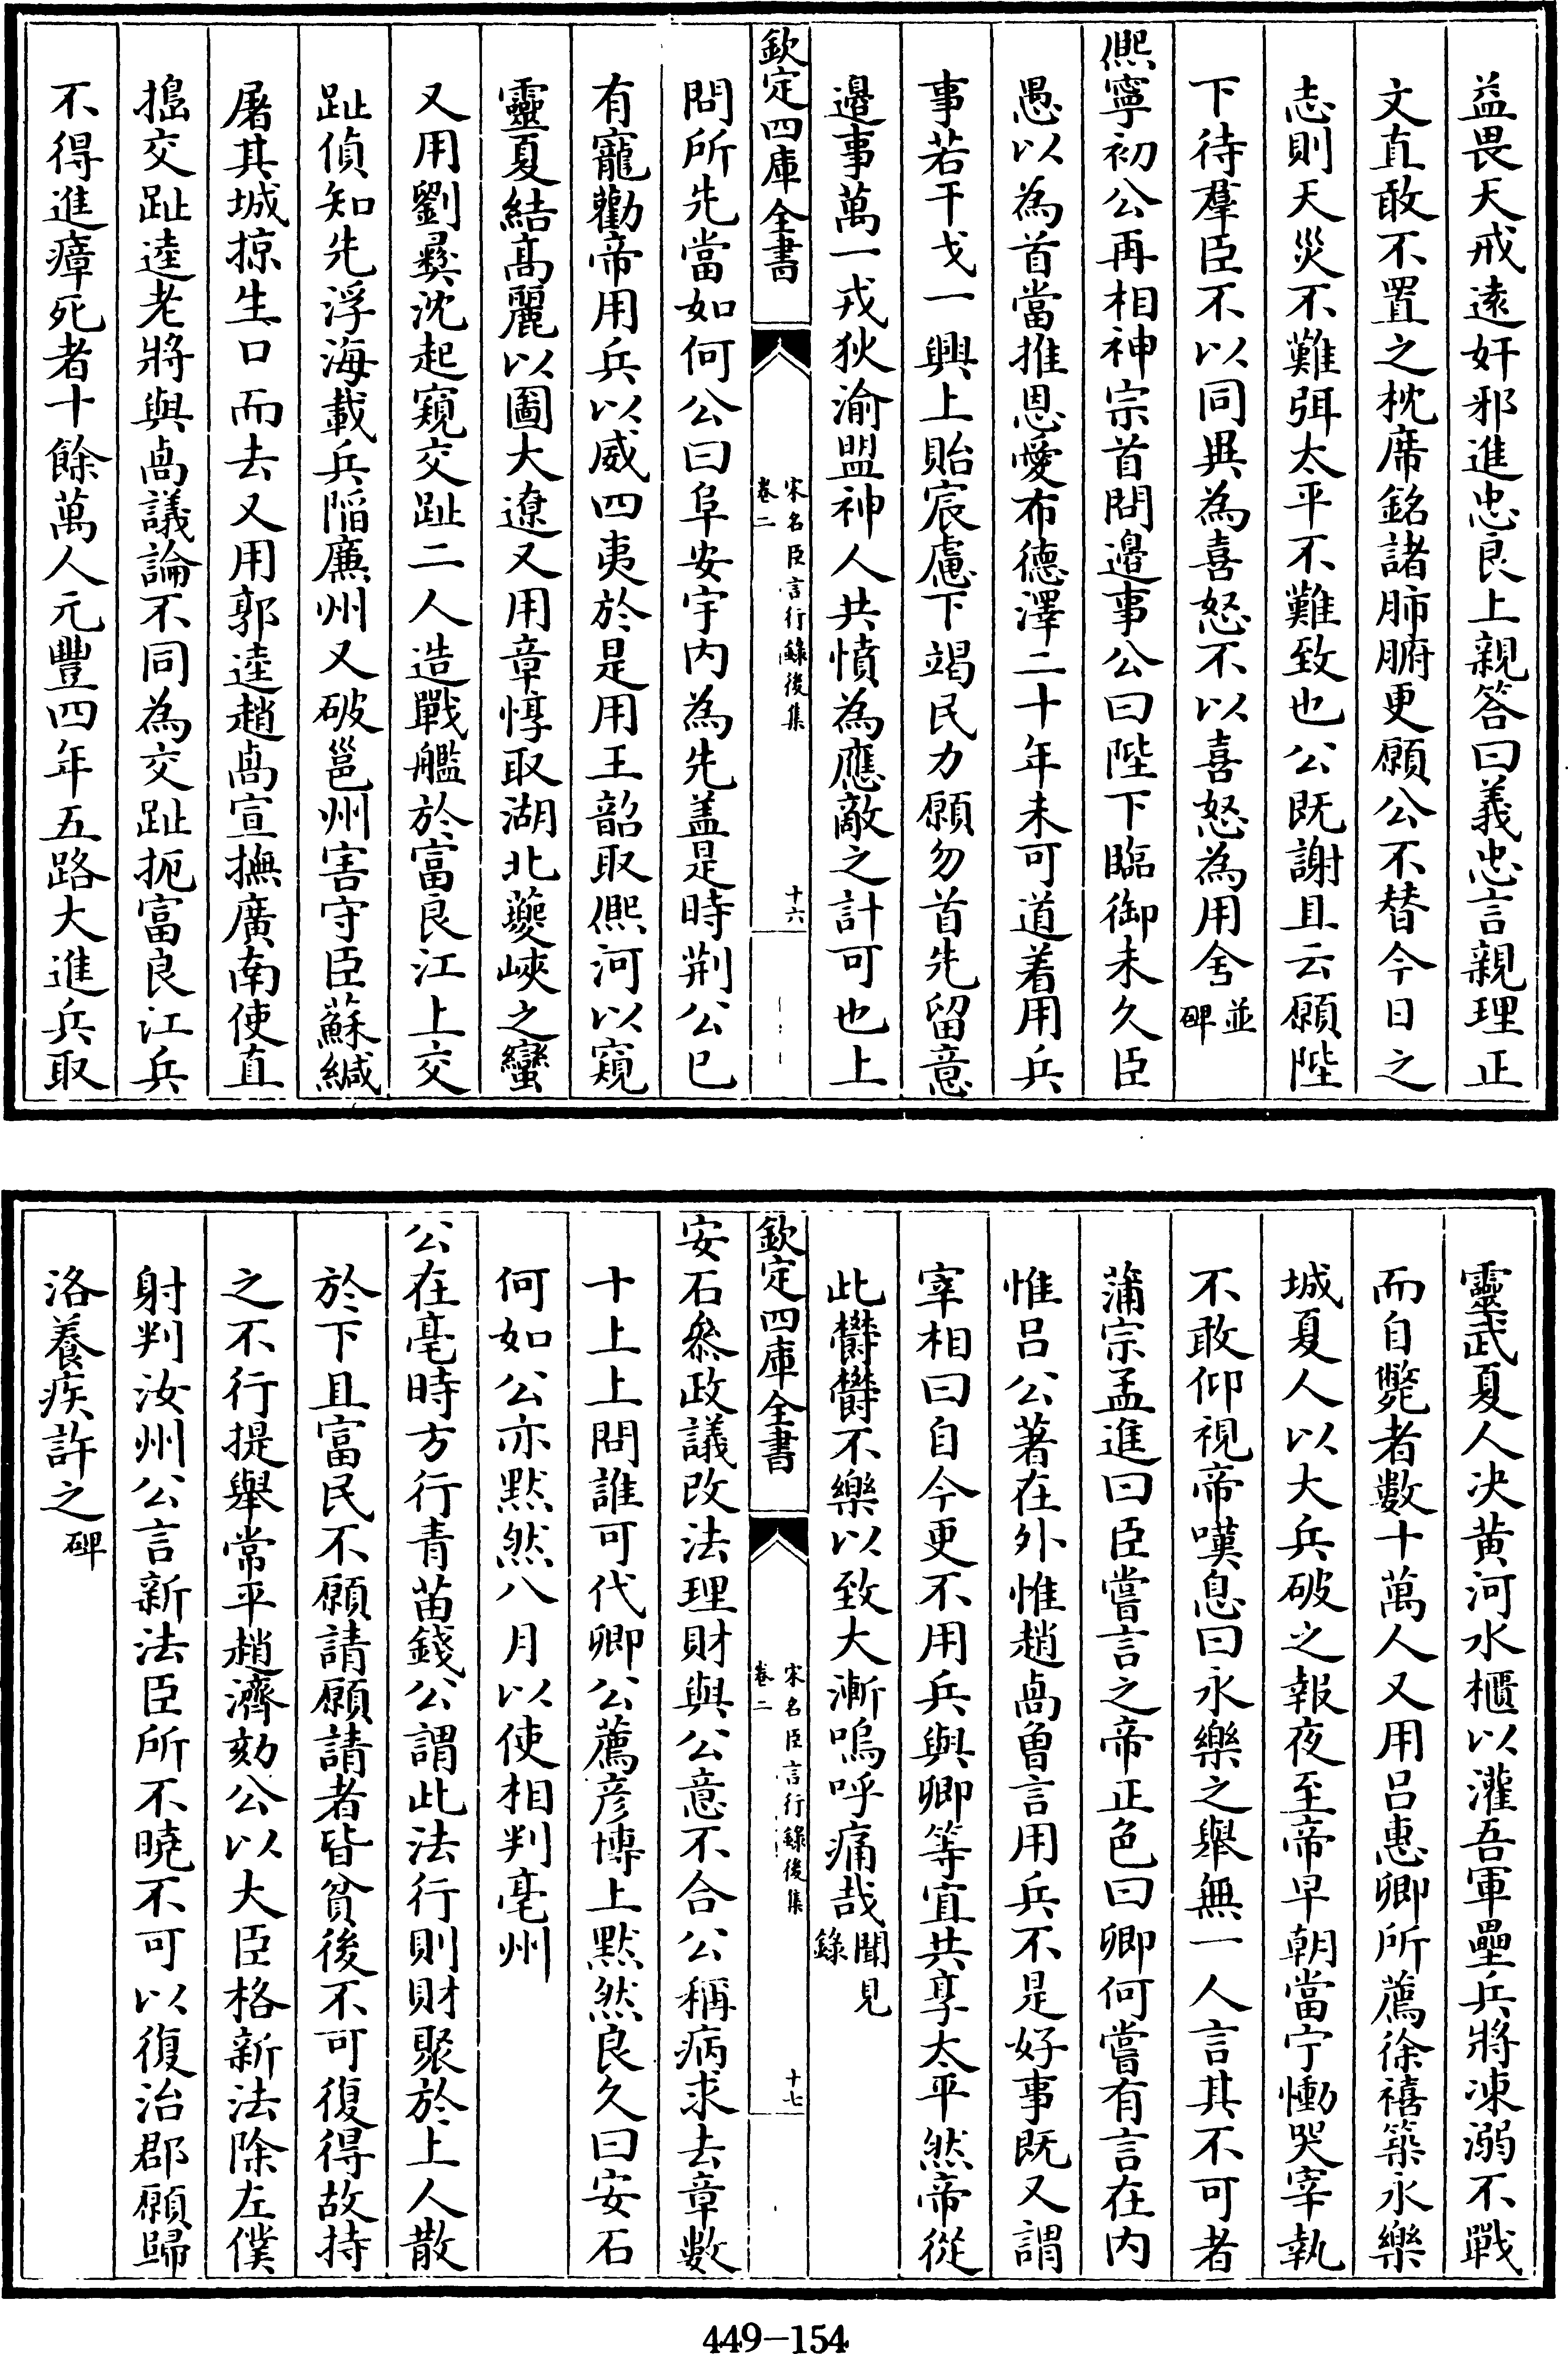 益畏天戒遠奸邪進忠良上親答曰義忠言親理正
文直敢不置之枕席銘諸肺腑更願公不替今日之
志則天災不難弭太平不難致也公既謝且云願陛
下待羣臣不以同異為喜怒不以喜怒為用舍並碑
熈寧初公再相神宗首問邉事公曰陛下臨御未久臣
愚以為首當推恩愛布德澤二十年未可道着用兵
事若干戈一興上貽宸慮下竭民力願勿首先留意
邉事萬一戎狄渝盟神人共憤為應敵之計可也上
欽定四庫全書
宋名臣言行錄後集
卷二
十六
問所先當如何公曰阜安宇内為先盖是時荆公已
有寵勸帝用兵以威四夷於是用王韶取熈河以窺
靈夏結髙麗以圖大遼又用章惇取湖北夔峽之蠻
又用劉彛沈起窺交趾二人造戰艦於富良江上交
趾偵知先浮海載兵陷亷州又破邕州害守臣蘇緘
屠其城掠生口而去又用郭逵趙卨宣撫廣南使直
搗交趾逵老將與卨議論不同為交趾扼富良江兵
不得進瘴死者十餘萬人元豐四年五路大進兵取
靈武夏人決黄河水櫃以灌吾軍壘兵將凍溺不戰
而自斃者數十萬人又用呂惠卿所薦徐禧築永樂
城夏人以大兵破之報夜至帝早朝當宁慟哭宰執
不敢仰視帝嘆息曰永樂之舉無一人言其不可者
蒲宗孟進曰臣嘗言之帝正色曰卿何嘗有言在内
惟呂公著在外惟趙卨曽言用兵不是好事既又謂
宰相曰自今更不用兵與卿等宜共享太平然帝從
此欝欝不樂以致大漸嗚呼痛哉聞見錄
欽定四庫全書
宋名臣言行錄後集
卷二
十七
安石叅政議改法理財與公意不合公稱病求去章數
十上上問誰可代卿公薦彦博上黙然良久曰安石
何如公亦黙然八月以使相判亳州
公在亳時方行青苗錢公謂此法行則財聚於上人散
於下且富民不願請願請者皆貧後不可復得故持
之不行提舉常平趙濟劾公以大臣格新法除左僕
射判汝州公言新法臣所不曉不可以復治郡願歸
洛養疾許之碑
449-154